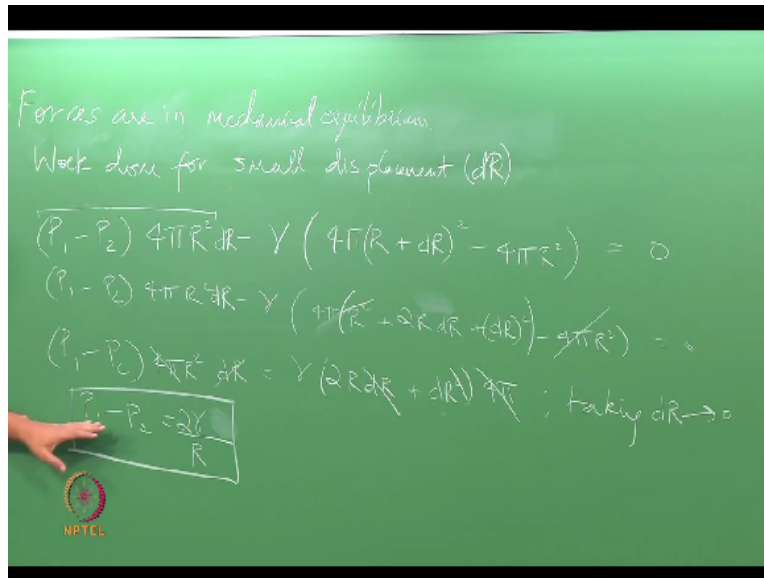 Forces are in mechanical equilibrium
Work done for small displacement (dR)
(P₁ - P₂) 4πR² dR - γ (4π(R + dR)² - 4πR²) = 0
(P₁ - P₂) 4πR² dR - γ (4π(R² + 2R dR + (dR)²) - 4πR²) = 0
(P₁ - P₂) 4πR² dR = γ (2R dR + dR²) 4π ; taking dR → 0
P₁ - P₂ = 2γ/R
NPTEL